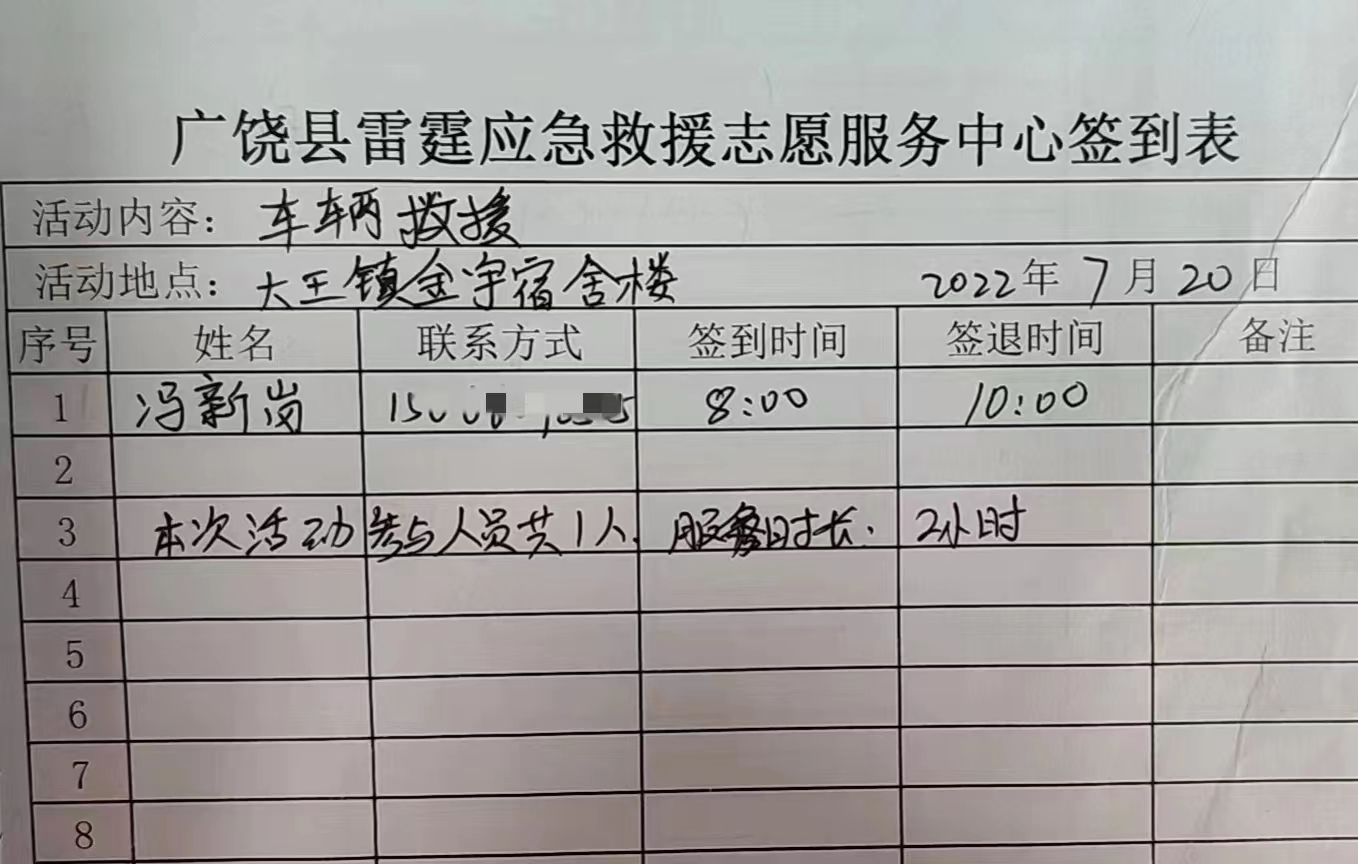 广饶县雷霆应急救援志愿服务中心签到表
活动内容：车辆救援
活动地点：大王镇金宇宿舍楼 2022年7月20日
序号 姓名 联系方式 签到时间 签退时间 备注
1 冯新岗 8:00 10:00
2
3 本次活动参与人员共1人. 服务时长. 2小时
4
5
6
7
8